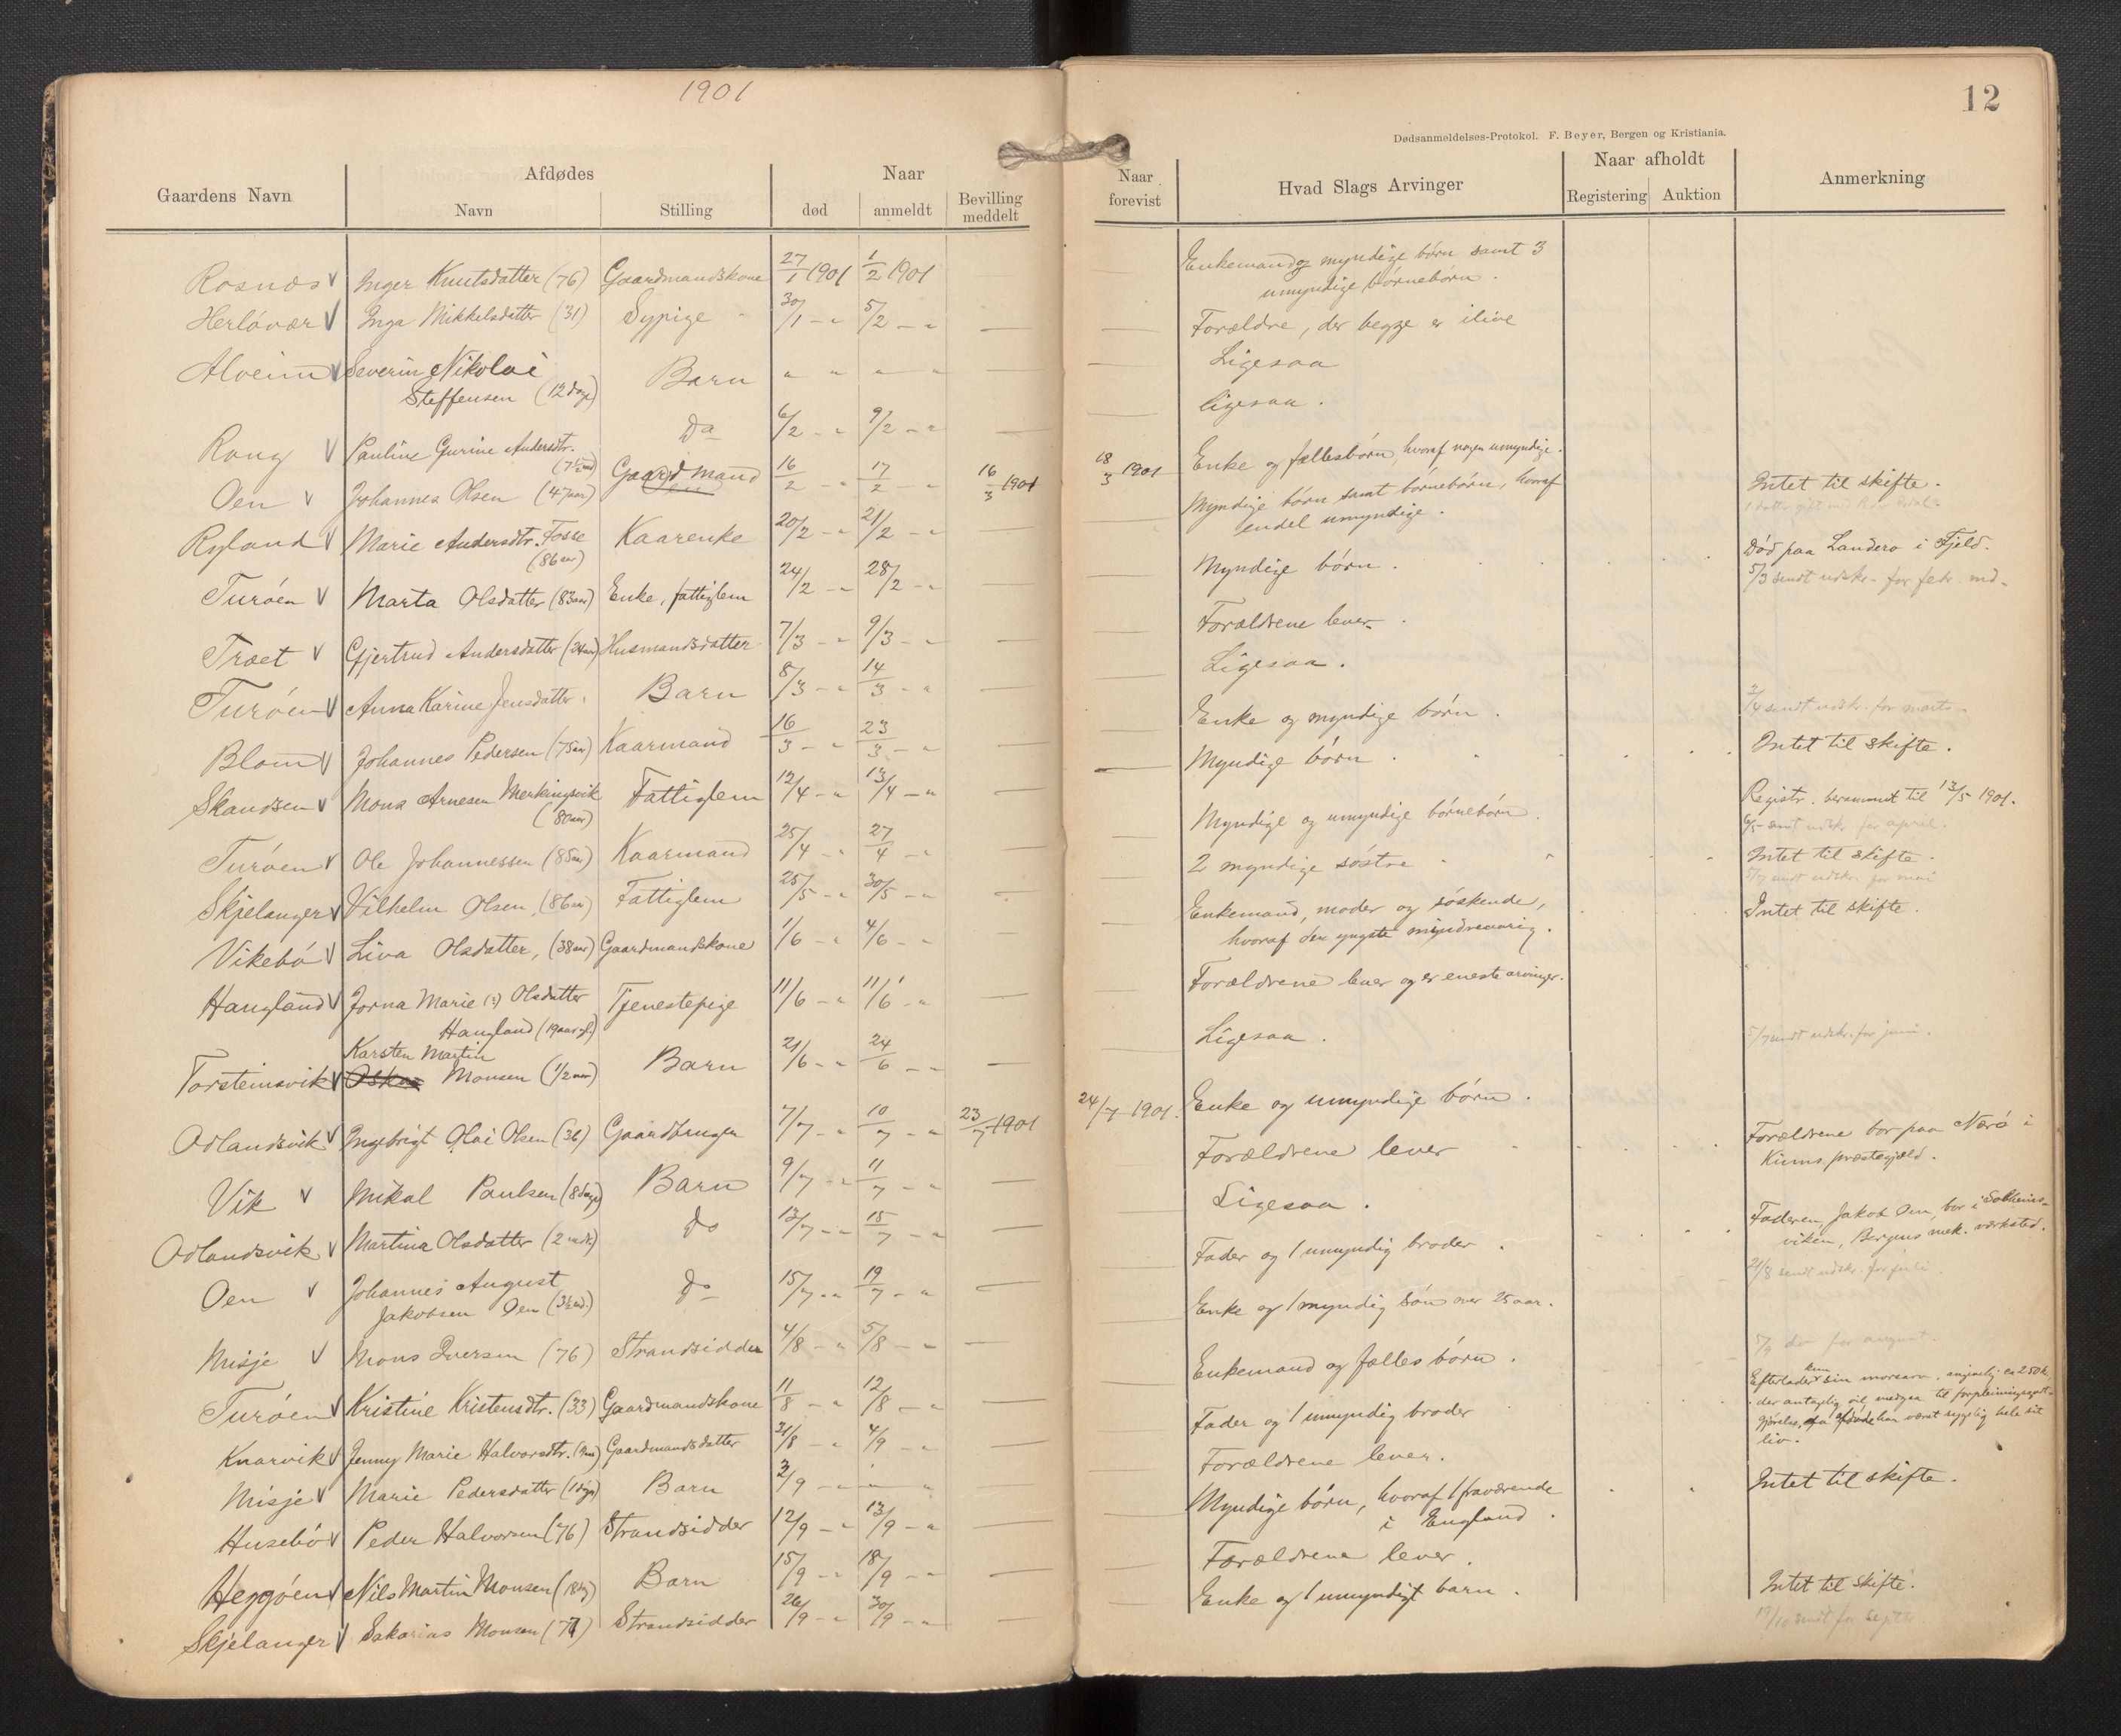 1901
Gaardens Navn
Afdødes
Navn
Stilling
Naar
død
anmeldt
Bevilling
meddelt
Rosnæs Inger Knutsdatter (76) Gaardmandskone 27/1 1901 1/2 1901
Herlövær Inga Mikkelsdatter (31) Sypige 30/1 - " 5/2 - " —
Alveim Severin Nikolai
Steffensen (12 dage) Barn " " " " —
Rong Pauline Gurine Andersdtr.
(7½ md) Do 6/2 - " 9/2 - " —
Oen Johannes Olsen (47 aar) Gaardmand 16/2 - " 17/2 - " 16/3 1901
Ryland Marie Andersdtr. Fosse
(86 aar) Kaarenke 20/2 - " 21/2 - " —
Turöen Marta Olsdatter (83 aar) Enke, fattiglem 24/2 - " 28/2 - " —
Træet Gjertrud Andersdatter (24 aar) Husmandsdatter 7/3 - " 9/3 - " —
Turöen Anna Karine Jensdatter. Barn 8/3 - " 14/3 - " —
Blom Johannes Pedersen (75 aar) Kaarmand 16/3 - " 23/3 - " —
Skandsen Mons Arnesen Merkingsvik
(80 aar) Fattiglem 12/4 - " 13/4 - " —
Turöen Ole Johannessen (85 aar) Kaarmand 25/4 - " 27/4 - " —
Skjelanger Vilhelm Olsen, (86 aar) Fattiglem 25/5 - " 30/5 - " —
Vikebö Liva Olsdatter, (38 aar) Gaardmandskone 1/6 - " 4/6 - " —
Haugland Jorna Marie (?) Olsdatter
Haugland (19 aar gl.) Tjenestepige 11/6 - " 11/6 - " —
Karsten Martin
Torsteinsvik Oskar Monsen (1/2 aar) Barn 21/6 - " 24/6 - " —
Odlandsvik Ingebrigt Olai Olsen (36) Gaardbruger 7/7 - " 10/7 - " 23/7 1901
Vik Mikal Paulsen (8 dage) Barn 9/7 - " 11/7 - " —
Odlandsvik Martina Olsdatter (2 mdr) Do 13/7 - " 15/7 - " —
Oen Johannes August
Jakobsen Oen (3½ md.) Do 15/7 - " 19/7 - " —
Misje Mons Iversen (76) Strandsidder 4/8 - " 5/8 - " —
Turöen Kristine Kristensdtr. (33) Gaardmandskone 11/8 - " 12/8 - " —
Knarvik Jenny Marie Halvorsdtr. Gaardmandsdatter 31/8 - " 4/9 - " —
Misje Marie Pedersdatter (1 dag) Barn 2/9 - " —
Husebö Peder Halvorsen (76) Strandsidder 12/9 - " 13/9 - " —
Heggöen Nils Martin Monsen (18 dg) Barn 15/9 - " 18/9 - " —
Skjelanger Sakarias Monsen (71) Strandsidder 26/9 - " 30/9 - " —
12
Dødsanmeldelses-Protokol. F. Beyer, Bergen og Kristiania.
Naar
forevist
Hvad Slags Arvinger
Naar afholdt
Registering
Auktion
Anmerkning
Enkemand og myndige börn samt 3
umyndige börnebörn.
— Forældre, der begge er ilive
— Ligesaa
— ligesaa.
18/3 1901 Enke og fællesbörn, hvoraf nogen umyndige.
— Myndige börn samt börnebörn, hvoraf
endel umyndige. Intet til skifte.
— Myndige börn. Död paa Landero i Fjeld.
5/3 sendt udskr. for febr. md.
— Forældrene lever.
— Ligesaa.
— Enke og myndige börn. 2/4 sendt udskr. for marts.
— Myndige börn. Intet til skifte.
— Myndige og umyndige börnebörn. Registr. berammet til 13/5 1901.
6/5 sendt udskr. for april.
— 2 myndige söstre Intet til skifte.
5/7 sendt udskr. for mai
— Enkemand, moder og söskende,
hvoraf den yngste mindreaarig. Intet til skifte.
— Forældrene lever og er eneste arvinger.
— Ligesaa. 5/7 sendt udskr. for juni.
24/7 1901. Enke og umyndige börn.
— Forældrene lever Forældrene bor paa Nærö i
Kinns præstegjæld.
— Ligesaa.
— Fader og 1 umyndig broder. Faderen, Jakob Oen, bor i Solheims-
viken, Bergens mek. værksted.
21/8 sendt udskr. for juli
— Enke og 1 myndig sön over 25 aar.
— Enkemand og fælles börn. 5/9 do for august.
— Fader og 1 umyndig broder Efterlader kun sin morsarv, ca 250 kr.
der antagelig vil medgaa til
afdöde har været sygelig hele sit
liv.
— Forældrene lever.
— Myndige börn, hvoraf 1 fraværende
i England. Intet til skifte.
— Forældrene lever.
— Enke og 1 umyndigt barn. Intet til skifte.
sendt for septbr.